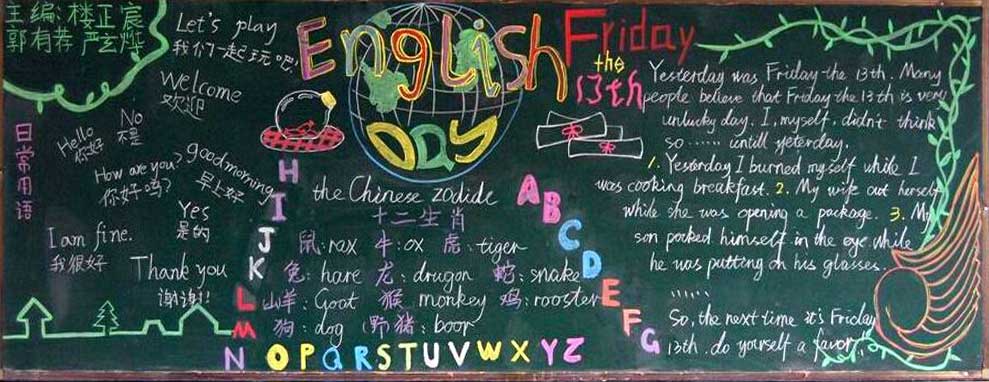 主编:楼正宸
郭有荐 严玄烨
日常用语
Let's play
我们一起玩吧.
Welcome
欢迎
No
不是
Hello
你好
How are you?
你好吗?
good morning
早上好
Yes
是的
I am fine.
我很好
Thank you
谢谢!
English
Day
the Chinese zodide
十二生肖
鼠:rax 牛:ox 虎:tiger
兔:hare 龙:drugon 蛇:snake
山羊:Goat 猴 monkey 鸡:rooster
狗:dog (野猪:boor
A
B
C
D
E
F
G
H
I
J
K
L
M
N
O P Q R S T U V W X Y Z
Friday
the
13th
Yesterday was Friday the 13th. Many
people believe that Friday the 13th is very
unlucky day. I, myself, didn't think
so ...... untill yeterday.
1. Yesterday I burned myself while I
was cooking breakfast. 2. My wife out herself
while she was opening a package. 3. My
son pocked himself in the eye while
he was putting on his glasses.
......
So, the next time it's Friday
13th. do yourself a favor